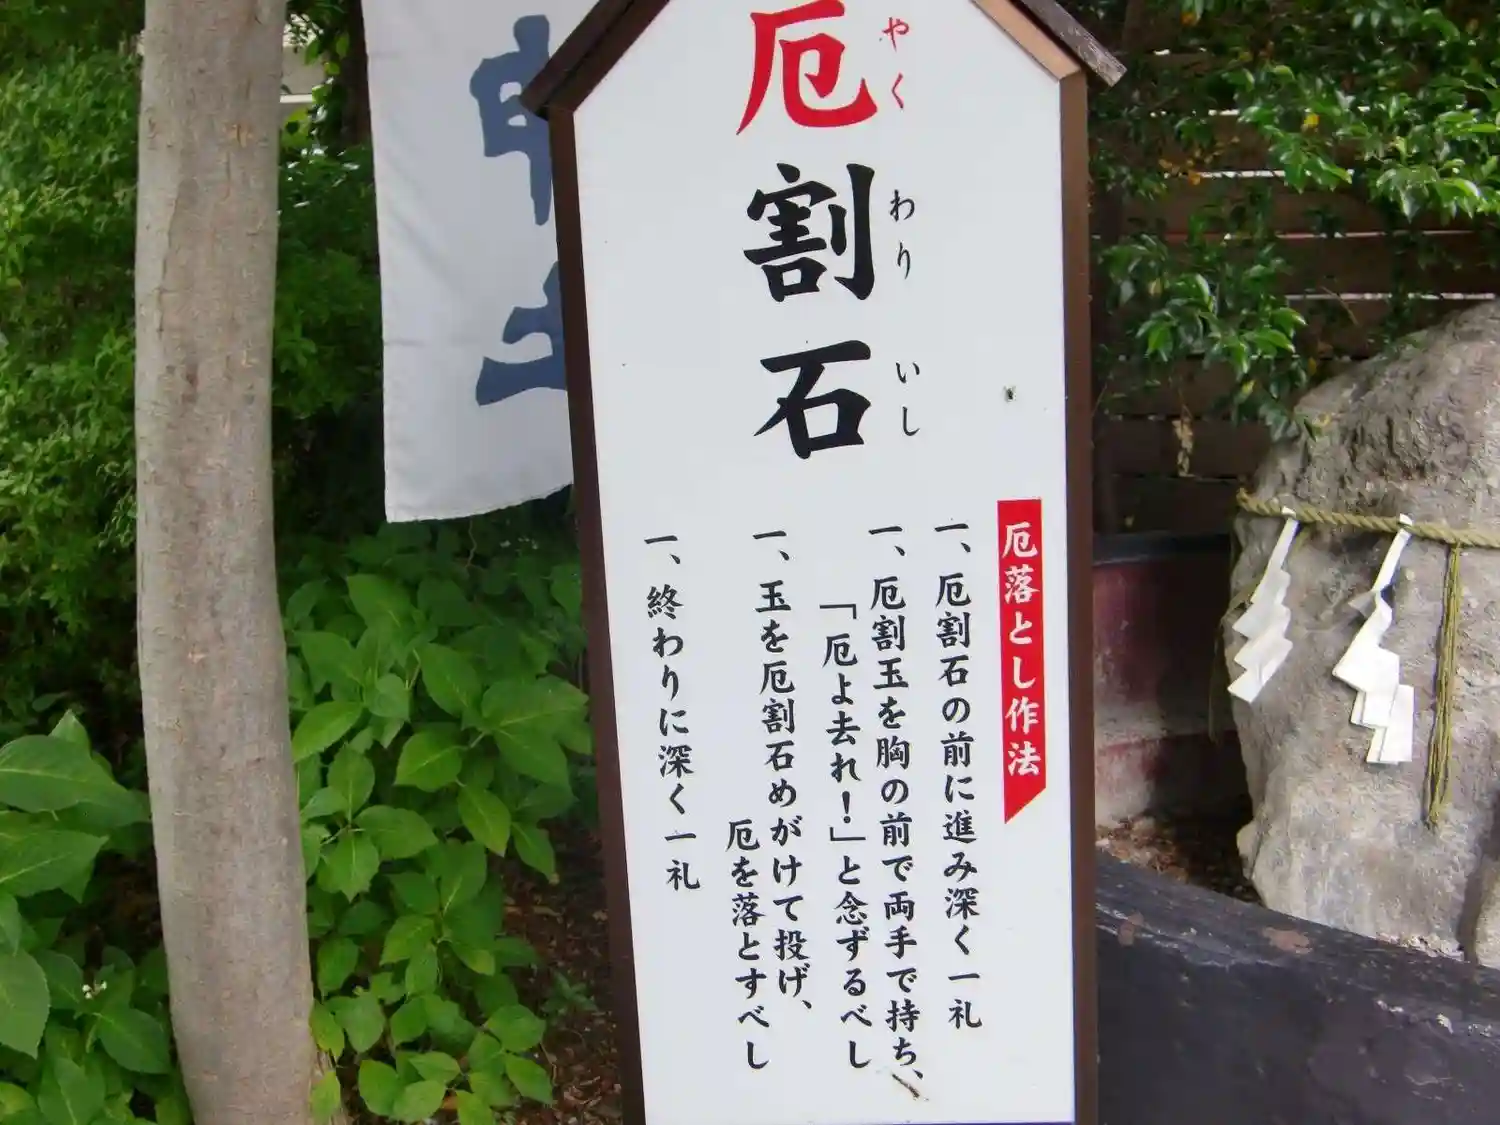 厄割石
やく わり いし
厄落とし作法
一、厄割石の前に進み深く一礼
一、厄割玉を胸の前で両手で持ち、
「厄よ去れ！」と念ずるべし
一、玉を厄割石めがけて投げ、
厄を落とすべし
一、終わりに深く一礼